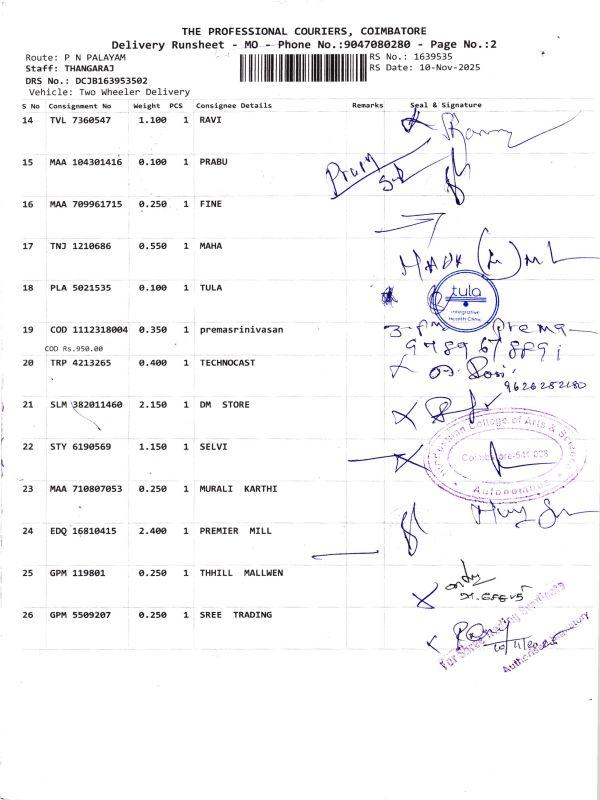 THE PROFESSIONAL COURIERS, COIMBATORE
Delivery Runsheet - MO - Phone No.:9047080280 - Page No.:2
Route: P N PALAYAM
RS No.: 1639535
Staff: THANGARAJ
RS Date: 10-Nov-2025
DRS No.: DCJB163953502
Vehicle: Two Wheeler Delivery
S No Consignment No Weight PCS Consignee Details Remarks Seal & Signature
14 TVL 7360547 1.100 1 RAVI
15 MAA 104301416 0.100 1 PRABU
16 MAA 709961715 0.250 1 FINE
17 TNJ 1210686 0.550 1 MAHA
18 PLA 5021535 0.100 1 TULA
tula
integrative
Health Clinic
19 COD 1112318004 0.350 1 premasrinivasan
Prema
COD Rs.950.00
20 TRP 4213265 0.400 1 TECHNOCAST
9626252180
21 SLM 382011460 2.150 1 DM STORE
College of Arts & Science
22 STY 6190569 1.150 1 SELVI
Coimbatore-641 028
Autonomous
23 MAA 710807053 0.250 1 MURALI KARTHI
24 EDQ 16810415 2.400 1 PREMIER MILL
25 GPM 119801 0.250 1 THHILL MALLWEN
26 GPM 5509207 0.250 1 SREE TRADING